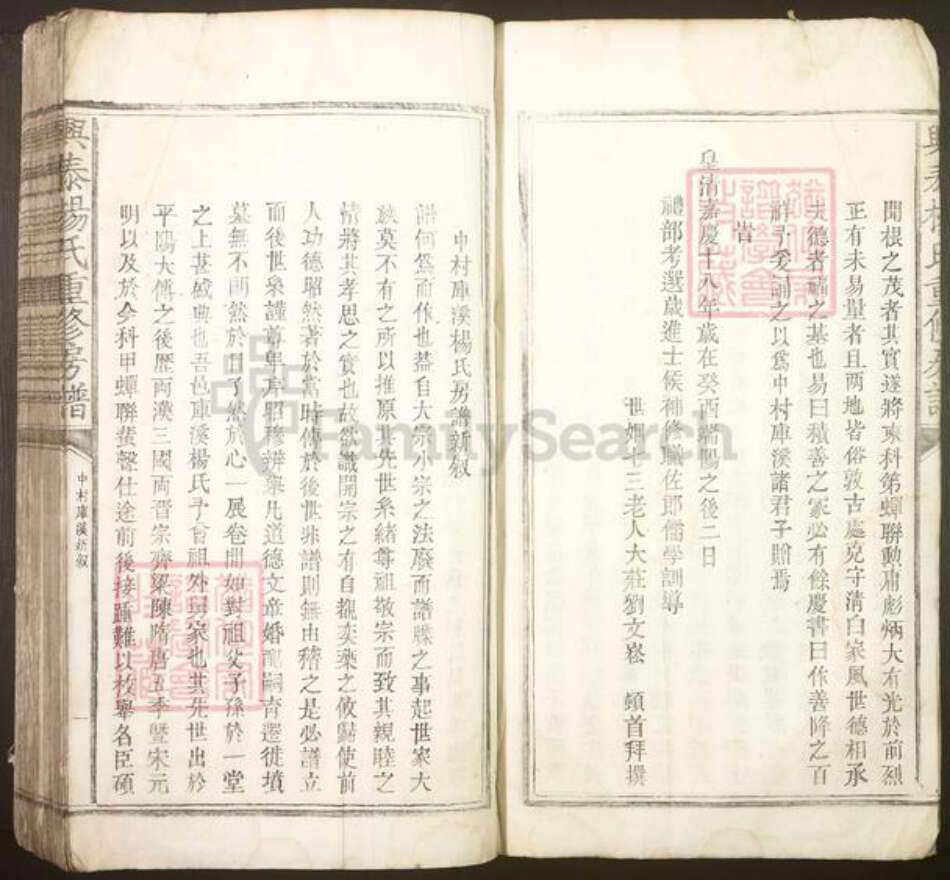 聞根之茂者其實遂將來科第蟬聯勳庸彪炳大有光於前烈
正有未易量者且两地皆俗敦古處克守清白家風世德相承
夫德者福之基也易曰積善之家必有餘慶書曰作善降之百
祥予爰誦之以爲中村庫溪諸君子贈焉
旹
皇清嘉慶十八年歲在癸酉端陽之後二日
禮部考選歲進士候補修職佐郎儒學訓導
世姻七三老人大莊劉文崧 頓首拜撰
興泰楊氏重修房譜
中村庫溪楊氏房譜新叙
譜何爲而作也葢自大宗小宗之法廢而譜牒之事起世家大
族莫不有之所以推原其先世系緒尊祖敬宗而致其親睦之
情將其孝思之實也故欲識開宗之有自觀奕葉之攸歸使前
人功德昭然著於當時傳於後世非譜則無由稽之是必譜立
而後世系謹尊卑序昭穆辨舉凡道德文章婚配嗣育遷徙墳
墓無不朗然於目了然於心一展卷間如對祖父子孫於一堂
之上甚盛典也吾邑庫溪楊氏予會祖外舅家也其先世出於
平陽大傅之後歴两漢三國两晋宗齊梁陳隋唐五季暨宋元
明以及於今科甲蟬聯蜚聲仕途前後接踵難以枚舉名臣碩
興泰楊氏重修房譜
中村庫溪新叙
一
FamilySearch